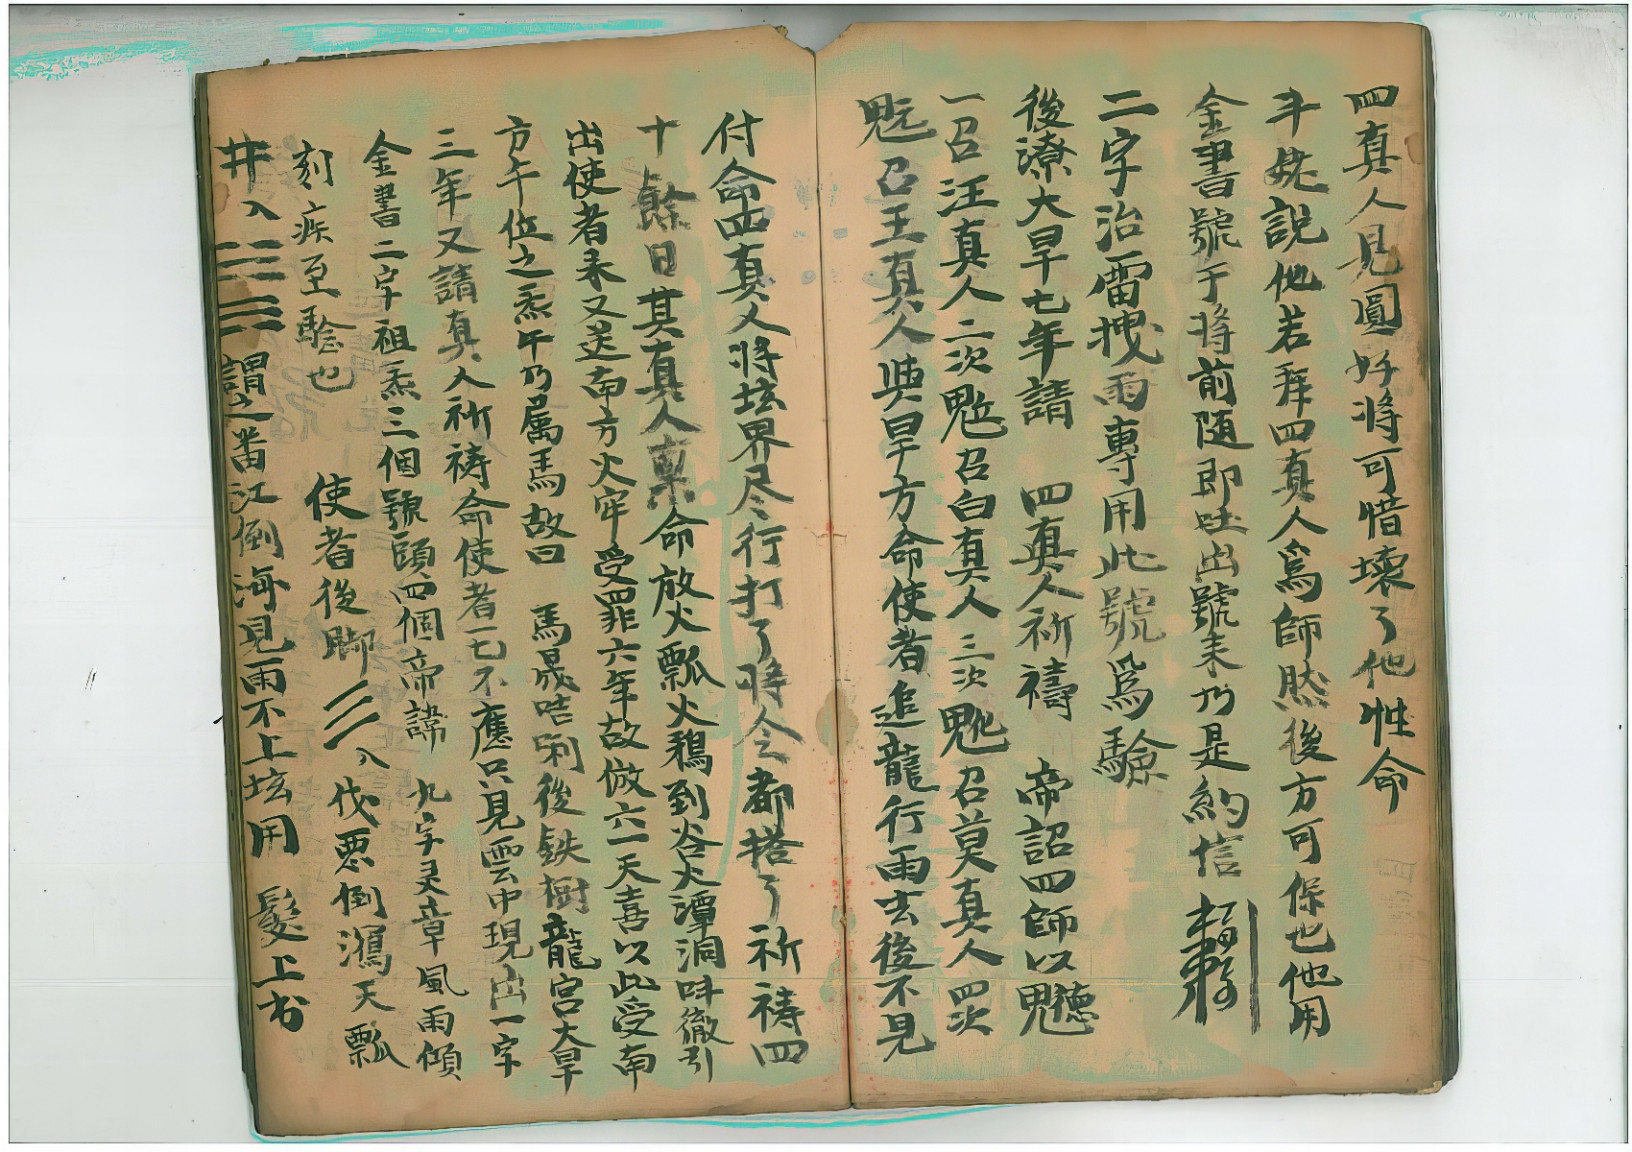 四真人見圓好將可惜壞了他性命
斗姥說他若拜四真人爲師然後方可保也他用
金書號于將前随即吐出號来乃是約信
二字治雷拽雨專用此號爲驗
後潦大旱七年請 四真人祈禱 帝詔四師以魒
一召汪真人二次魁召白真人三次魤召莫真人四次
召王真人與旱方命使者追龍行雨去後不見
付命四真人將坛界尽行打了将令都搭了祈祷四
十餘日其真人禀命放火瓢火鴉到火潭洞呌徹引
出使者来又送南方火牢受罪六年故倣六一天喜以此受南
方午位之炁午乃属馬故曰 馬晟咭唎後鉄樹龍宫大旱
三年又請真人祈祷命使者亡不應只見雲中現出一字
金書二字祖炁三個號頤四個帝諱 九字灵章風雨傾
刻疾至驗也 使者後脚 三入伐悪倒瀉天瓢
井入 三 謂之畨江倒海見雨不上坛用 髮上书